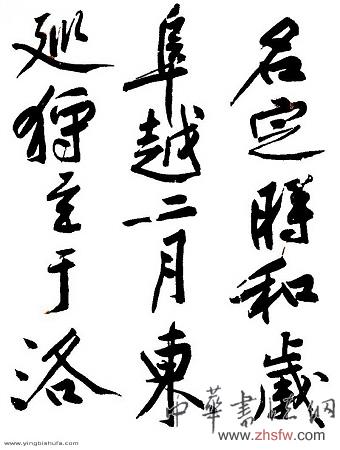 名定時和歲
阜越二月東
巡狩至于洛
中華書法網
www.zhsfw.com
www.yingbishufa.com